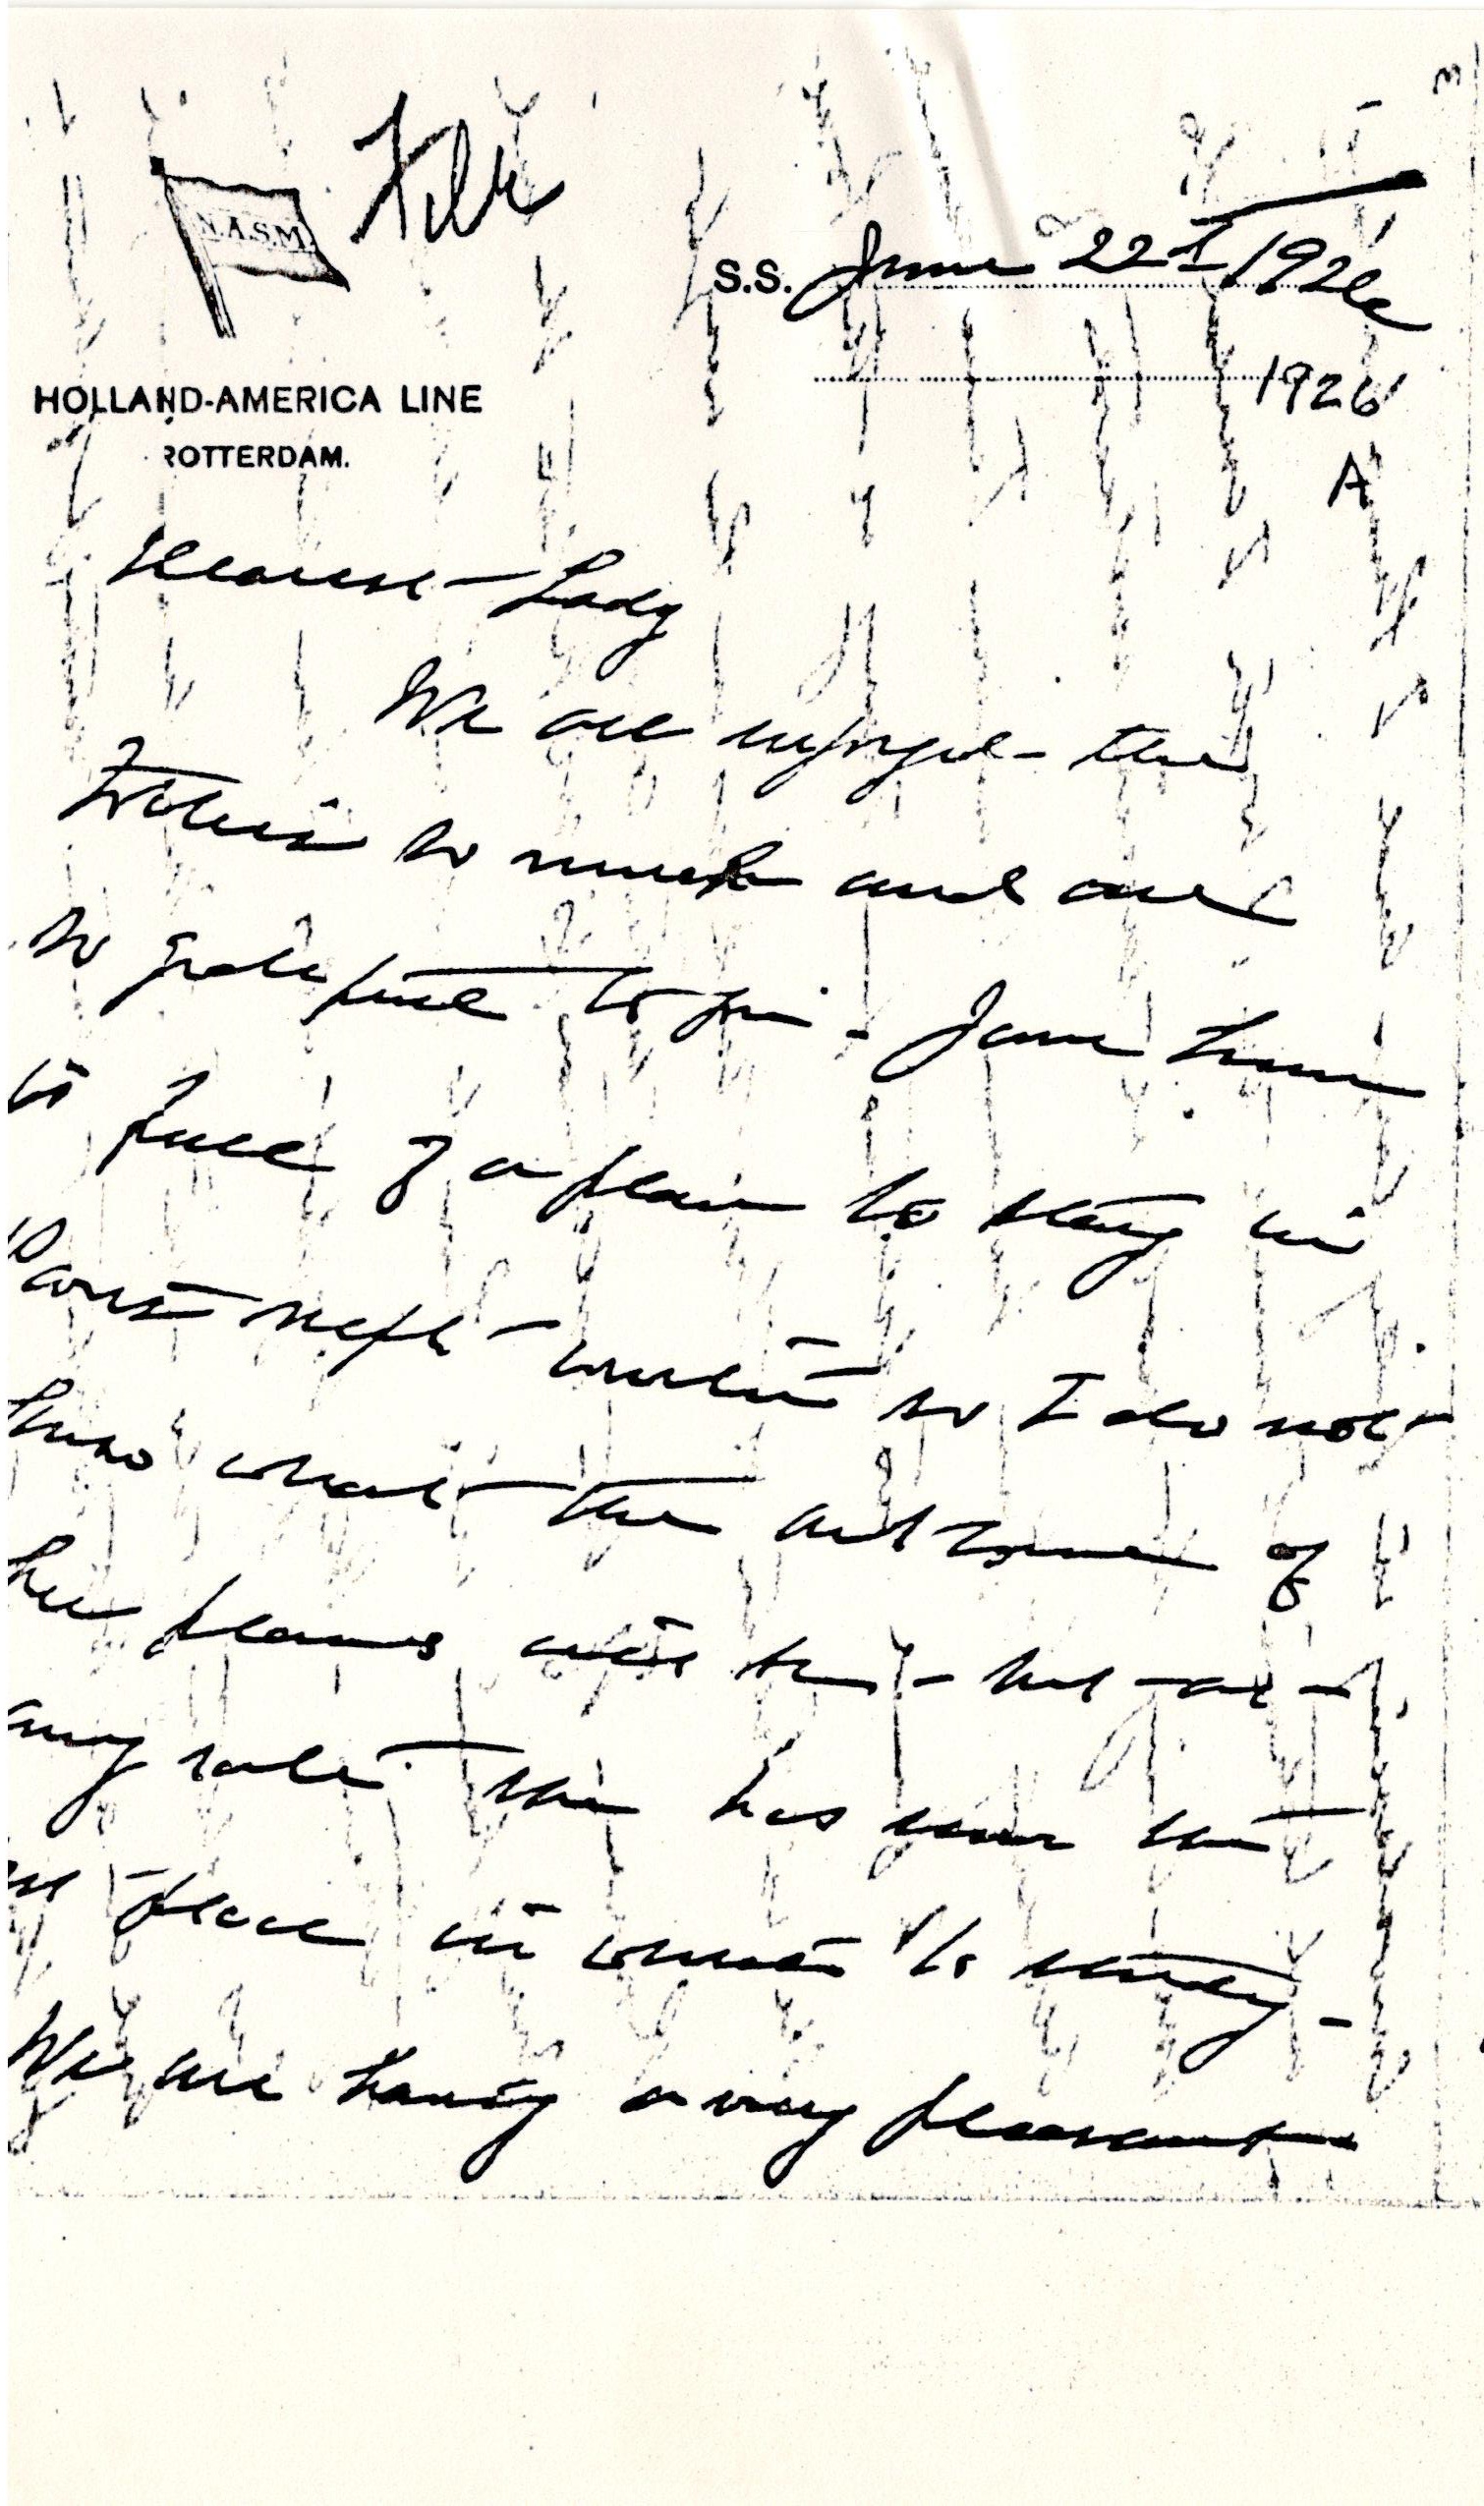 N.A.S.M.
File
S.S. June 22d 1926
1926
HOLLAND-AMERICA LINE
ROTTERDAM.
A
Dearest Lady
We all enjoyed the
so much and are
so grateful to you. Jane
is full of a plan to stay in
Paris next winter so I do not
know what the outcome of
her plans will be - but at
any rate she has your
place in which to study -
We are having a very pleasant